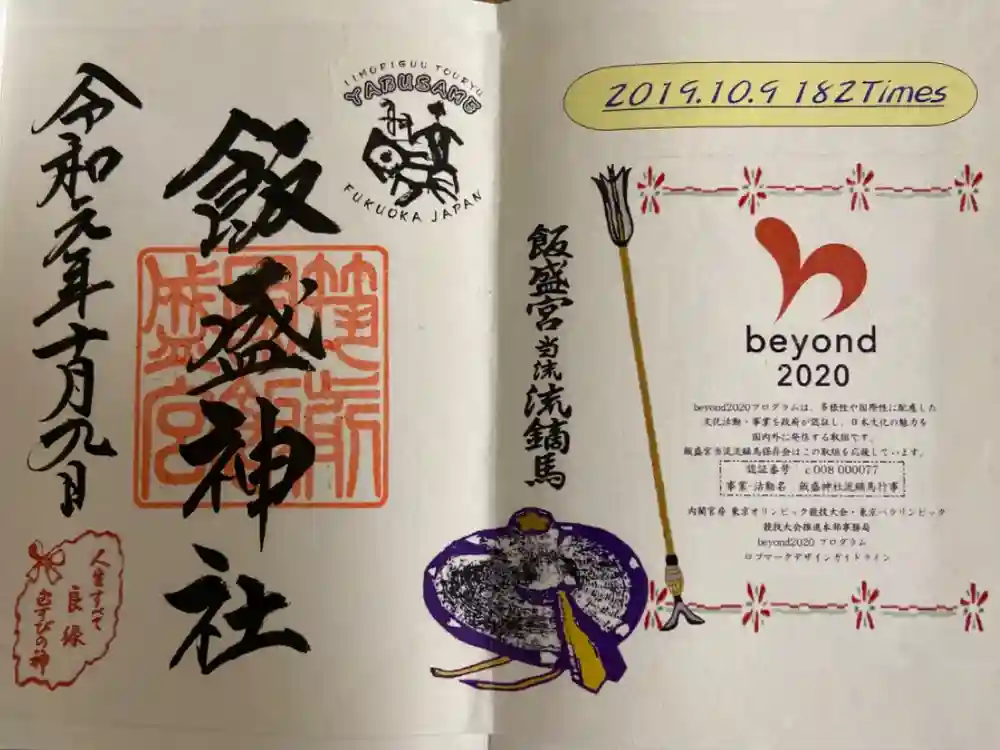 令和元年十月九日
飯盛神社
IIMORIGUU TOURYU
YABUSAME
FUKUOKA JAPAN
人生すべて
良縁
むすびの神
2019.10.9 182Times
飯盛宮当流流鏑馬
beyond
2020
beyond2020プログラムは、多様性や国際性に配慮した
文化活動・事業を政府が認証し、日本文化の魅力を
国内外に発信する取組です。
飯盛宮当流流鏑馬保存会はこの取組を応援しています。
認証番号 c008 000077
事業・活動名 飯盛神社流鏑馬行事
内閣官房 東京オリンピック競技大会・東京パラリンピック
競技大会推進本部事務局
beyond2020 プログラム
ロゴマークデザインガイドライン